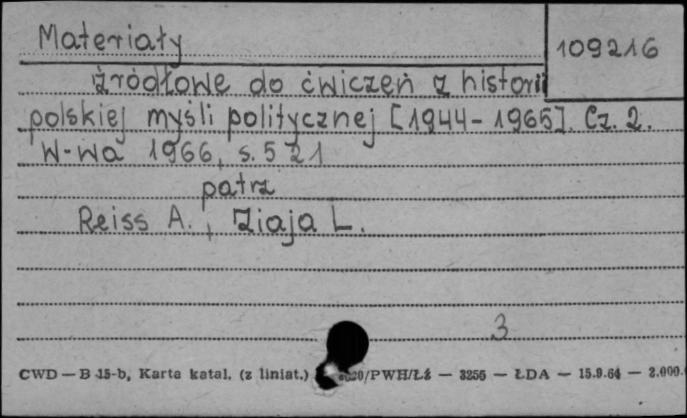 Materiały
109216
źródłowe do ćwiczeń z historii
polskiej myśli politycznej [1944-1965]. Cz. 2.
W-wa 1966, s. 521
patrz
Reiss A., Ziaja L.
3
CWD — B 15-b, Karta katal. (z liniat.) /PWH/Łż — 3256 — ŁDA — 15.9.64 — 2.000.